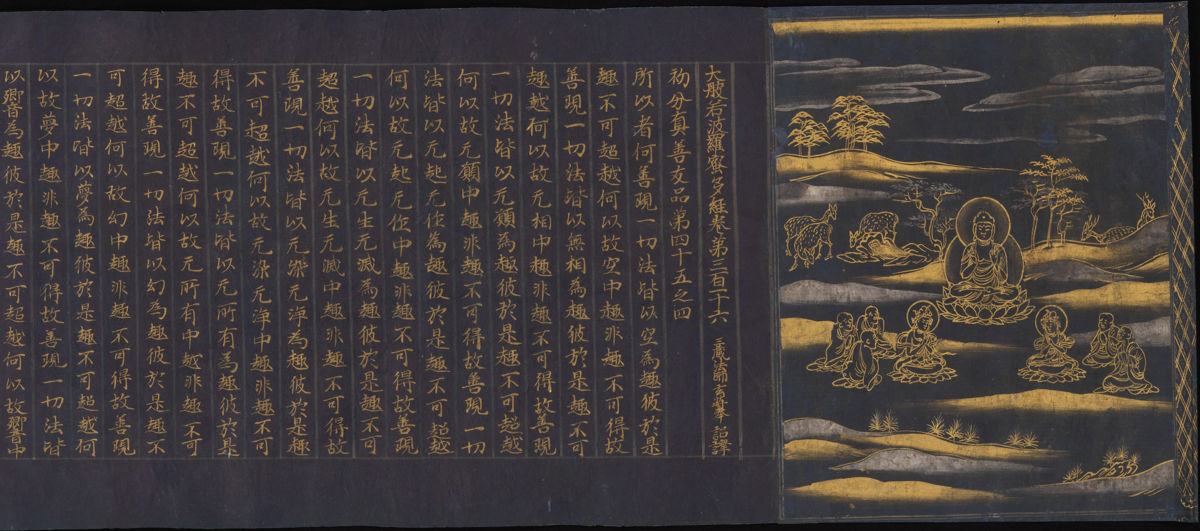 大般若波羅蜜多經卷第三百一十六
初分真善友品第四十五之四 三藏法師玄奘奉 詔譯
所以者何善現一切法皆以空為趣彼於是
趣不可超越何以故空中趣非趣不可得故
善現一切法皆以無相為趣彼於是趣不可
超越何以故无相中趣非趣不可得故善現
一切法皆以无願為趣彼於是趣不可超越
何以故无願中趣非趣不可得故善現一切
法皆以无起无作為趣彼於是趣不可超越
何以故无起无作中趣非趣不可得故善現
一切法皆以无生无滅為趣彼於是趣不可
超越何以故无生无滅中趣非趣不可得故
善現一切法皆以无染无淨為趣彼於是趣
不可超越何以故无染无淨中趣非趣不可
得故善現一切法皆以无所有為趣彼於是
趣不可超越何以故无所有中趣非趣不可
得故善現一切法皆以幻為趣彼於是趣不
可超越何以故幻中趣非趣不可得故善現
一切法皆以夢為趣彼於是趣不可超越何
以故夢中趣非趣不可得故善現一切法皆
以響為趣彼於是趣不可超越何以故響中